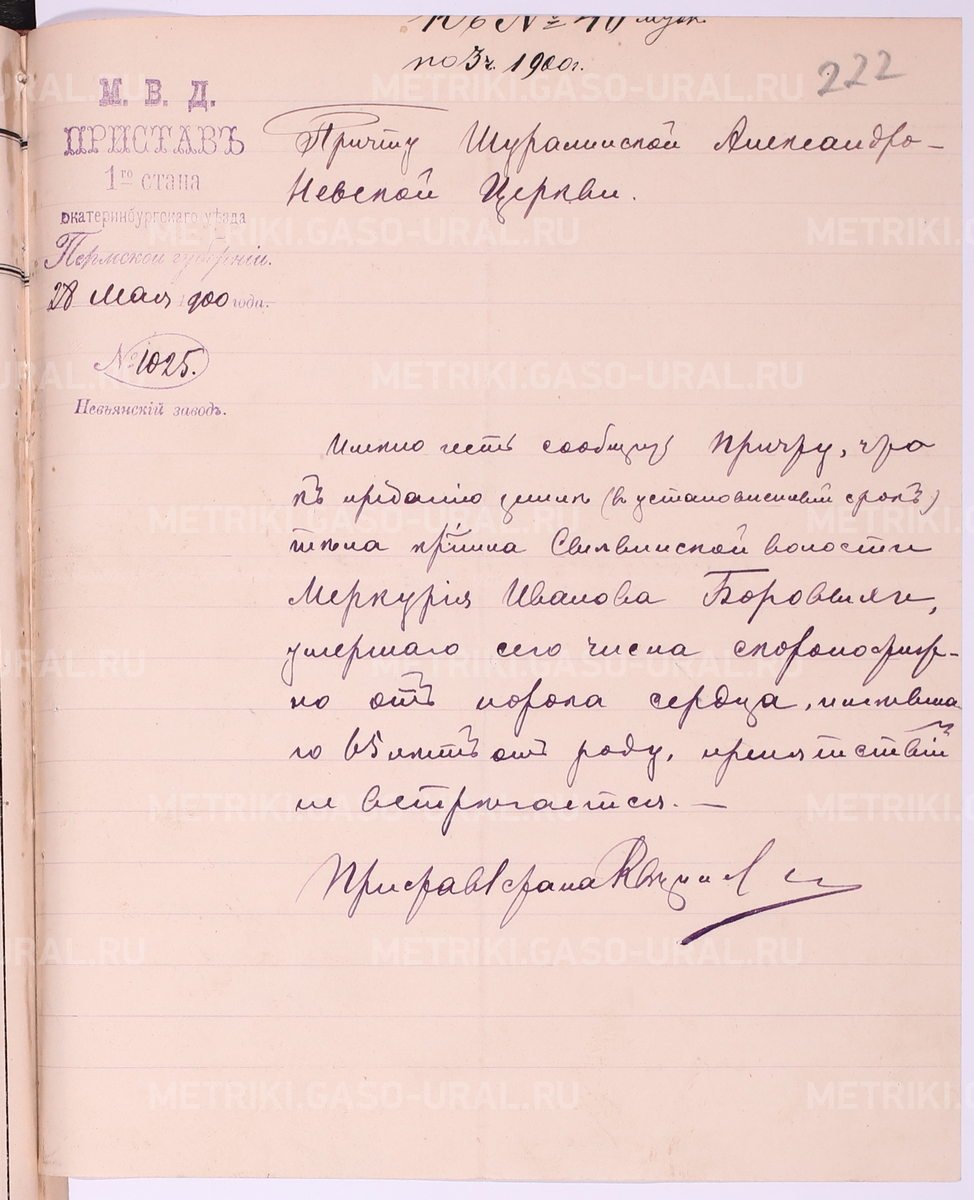 Къ № 40 муж.
по 3 ч. 1900 г.
222
М. В. Д.
ПРИСТАВЪ
1го стана
Екатеринбургскаго уѣзда
Пермской губерніи.
28 Мая 1900 года.
№ 1025.
Невьянскій заводъ.
Причту Шуралинской Александро-
Невской Церкви.
Имѣю честь сообщить Причту, что
къ преданію землѣ (въ установленный срокъ)
тѣла кр-нина волости
Меркурія Иванова
умершаго сего числа скоропостиж-
но отъ порока сердца, имѣвша-
го 65 лѣтъ отъ роду, препятствій
не встрѣчается. —
Приставъ 1 стана
METRIKI.GASO-URAL.RU